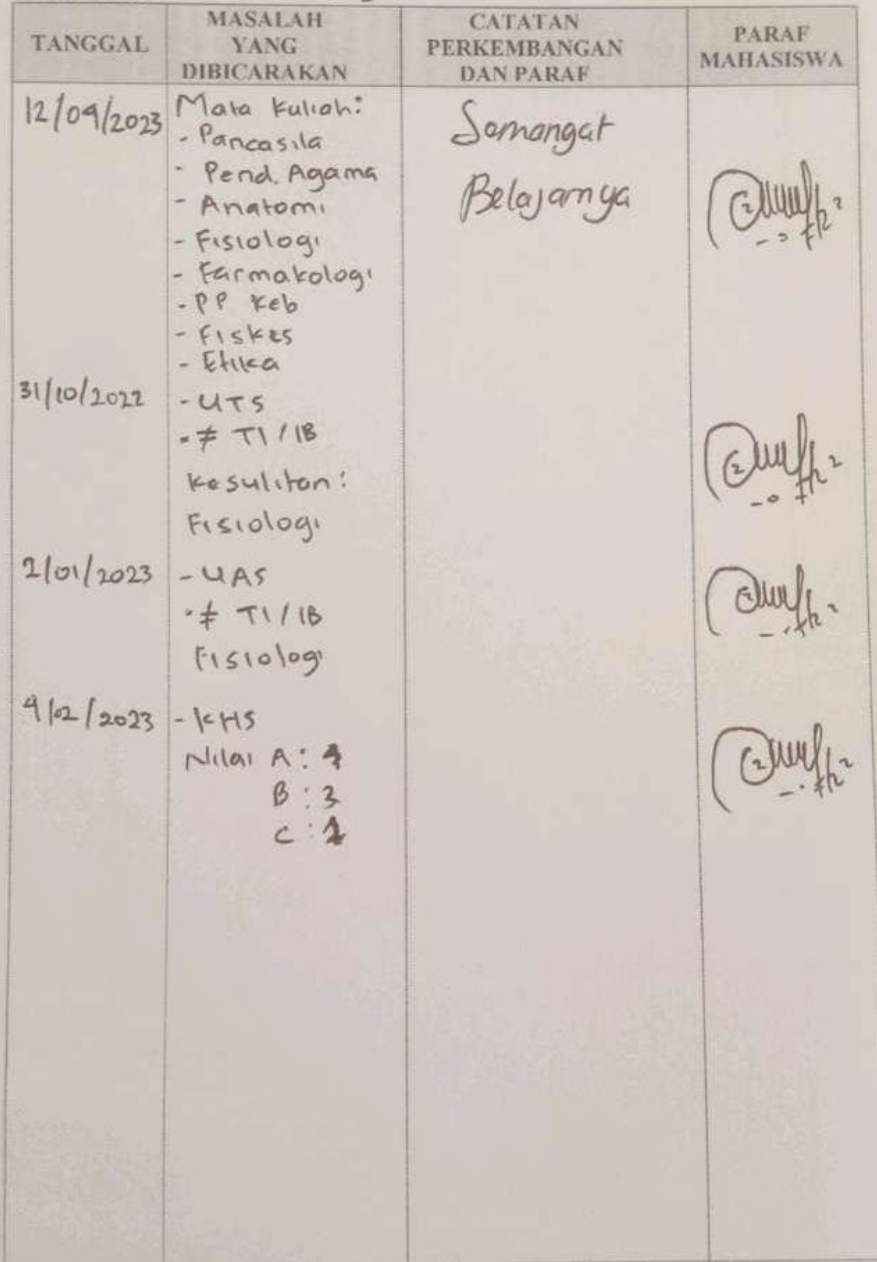 TANGGAL
MASALAH
YANG
DIBICARAKAN
CATATAN
PERKEMBANGAN
DAN PARAF
PARAF
MAHASISWA
12/09/2023
Mata Kuliah:
- Pancasila
- Pend. Agama
- Anatomi
- Fisiologi
- Farmakologi
- PP Keb
- Fiskes
- Etika
Semangat
Belajarnya
31/10/2022
- UTS
- ≠ TI / IB
Kesulitan:
Fisiologi
2/01/2023
- UAS
- ≠ TI / IB
Fisiologi
4/02/2023
- KHS
Nilai A: 4
B: 3
C: 1